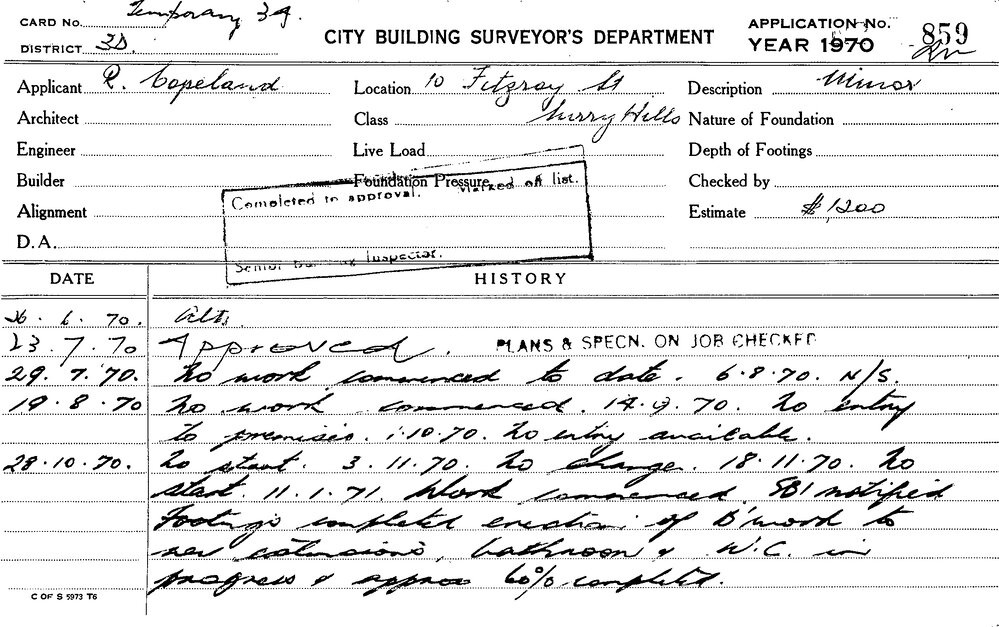 CARD No. Temporary 39.
DISTRICT 3D
CITY BUILDING SURVEYOR'S DEPARTMENT
APPLICATION No. 859
YEAR 1970
Applicant R. Copeland Location 10 Fitzroy St Description Minor
Architect Class Surry Hills Nature of Foundation
Engineer Live Load Depth of Footings
Builder Foundation Pressure Checked by
Completed to approval. Marked off list.
Alignment Estimate $1,200
D.A.
Senior Building Inspector.
DATE HISTORY
26.6.70. Alts.
23.7.70 Approved. PLANS & SPECN. ON JOB CHECKED
29.7.70. No work commenced to date. 6.8.70. N/S.
19.8.70 No work commenced. 14.9.70. No entry
to premises. 1.10.70. No entry available.
28.10.70. No start. 3.11.70. No change. 18.11.70. No
start. 11.1.71. Work commenced. SBI notified
Footings completed erection of B'work to
new extensions, bathroom & W.C. in
progress & approx 60% completed.
C OF S 5973 T6